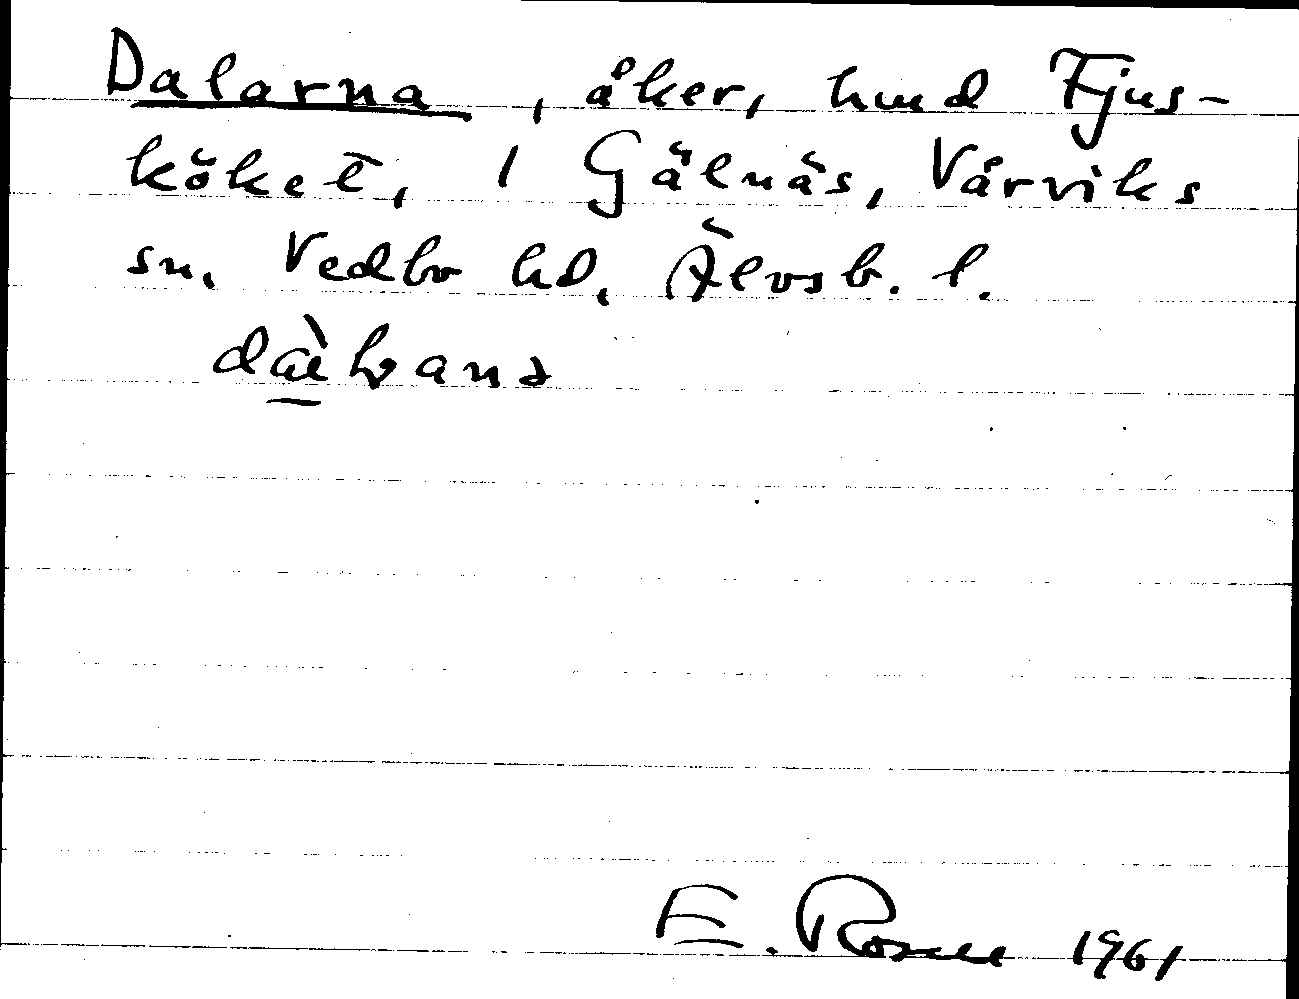 Dalarna, åker, hmd Fjus-
köket, 1 Gälnäs, Vårviks
sn. Vedbo hd, Älvsb. l.
E. Rosell 1961